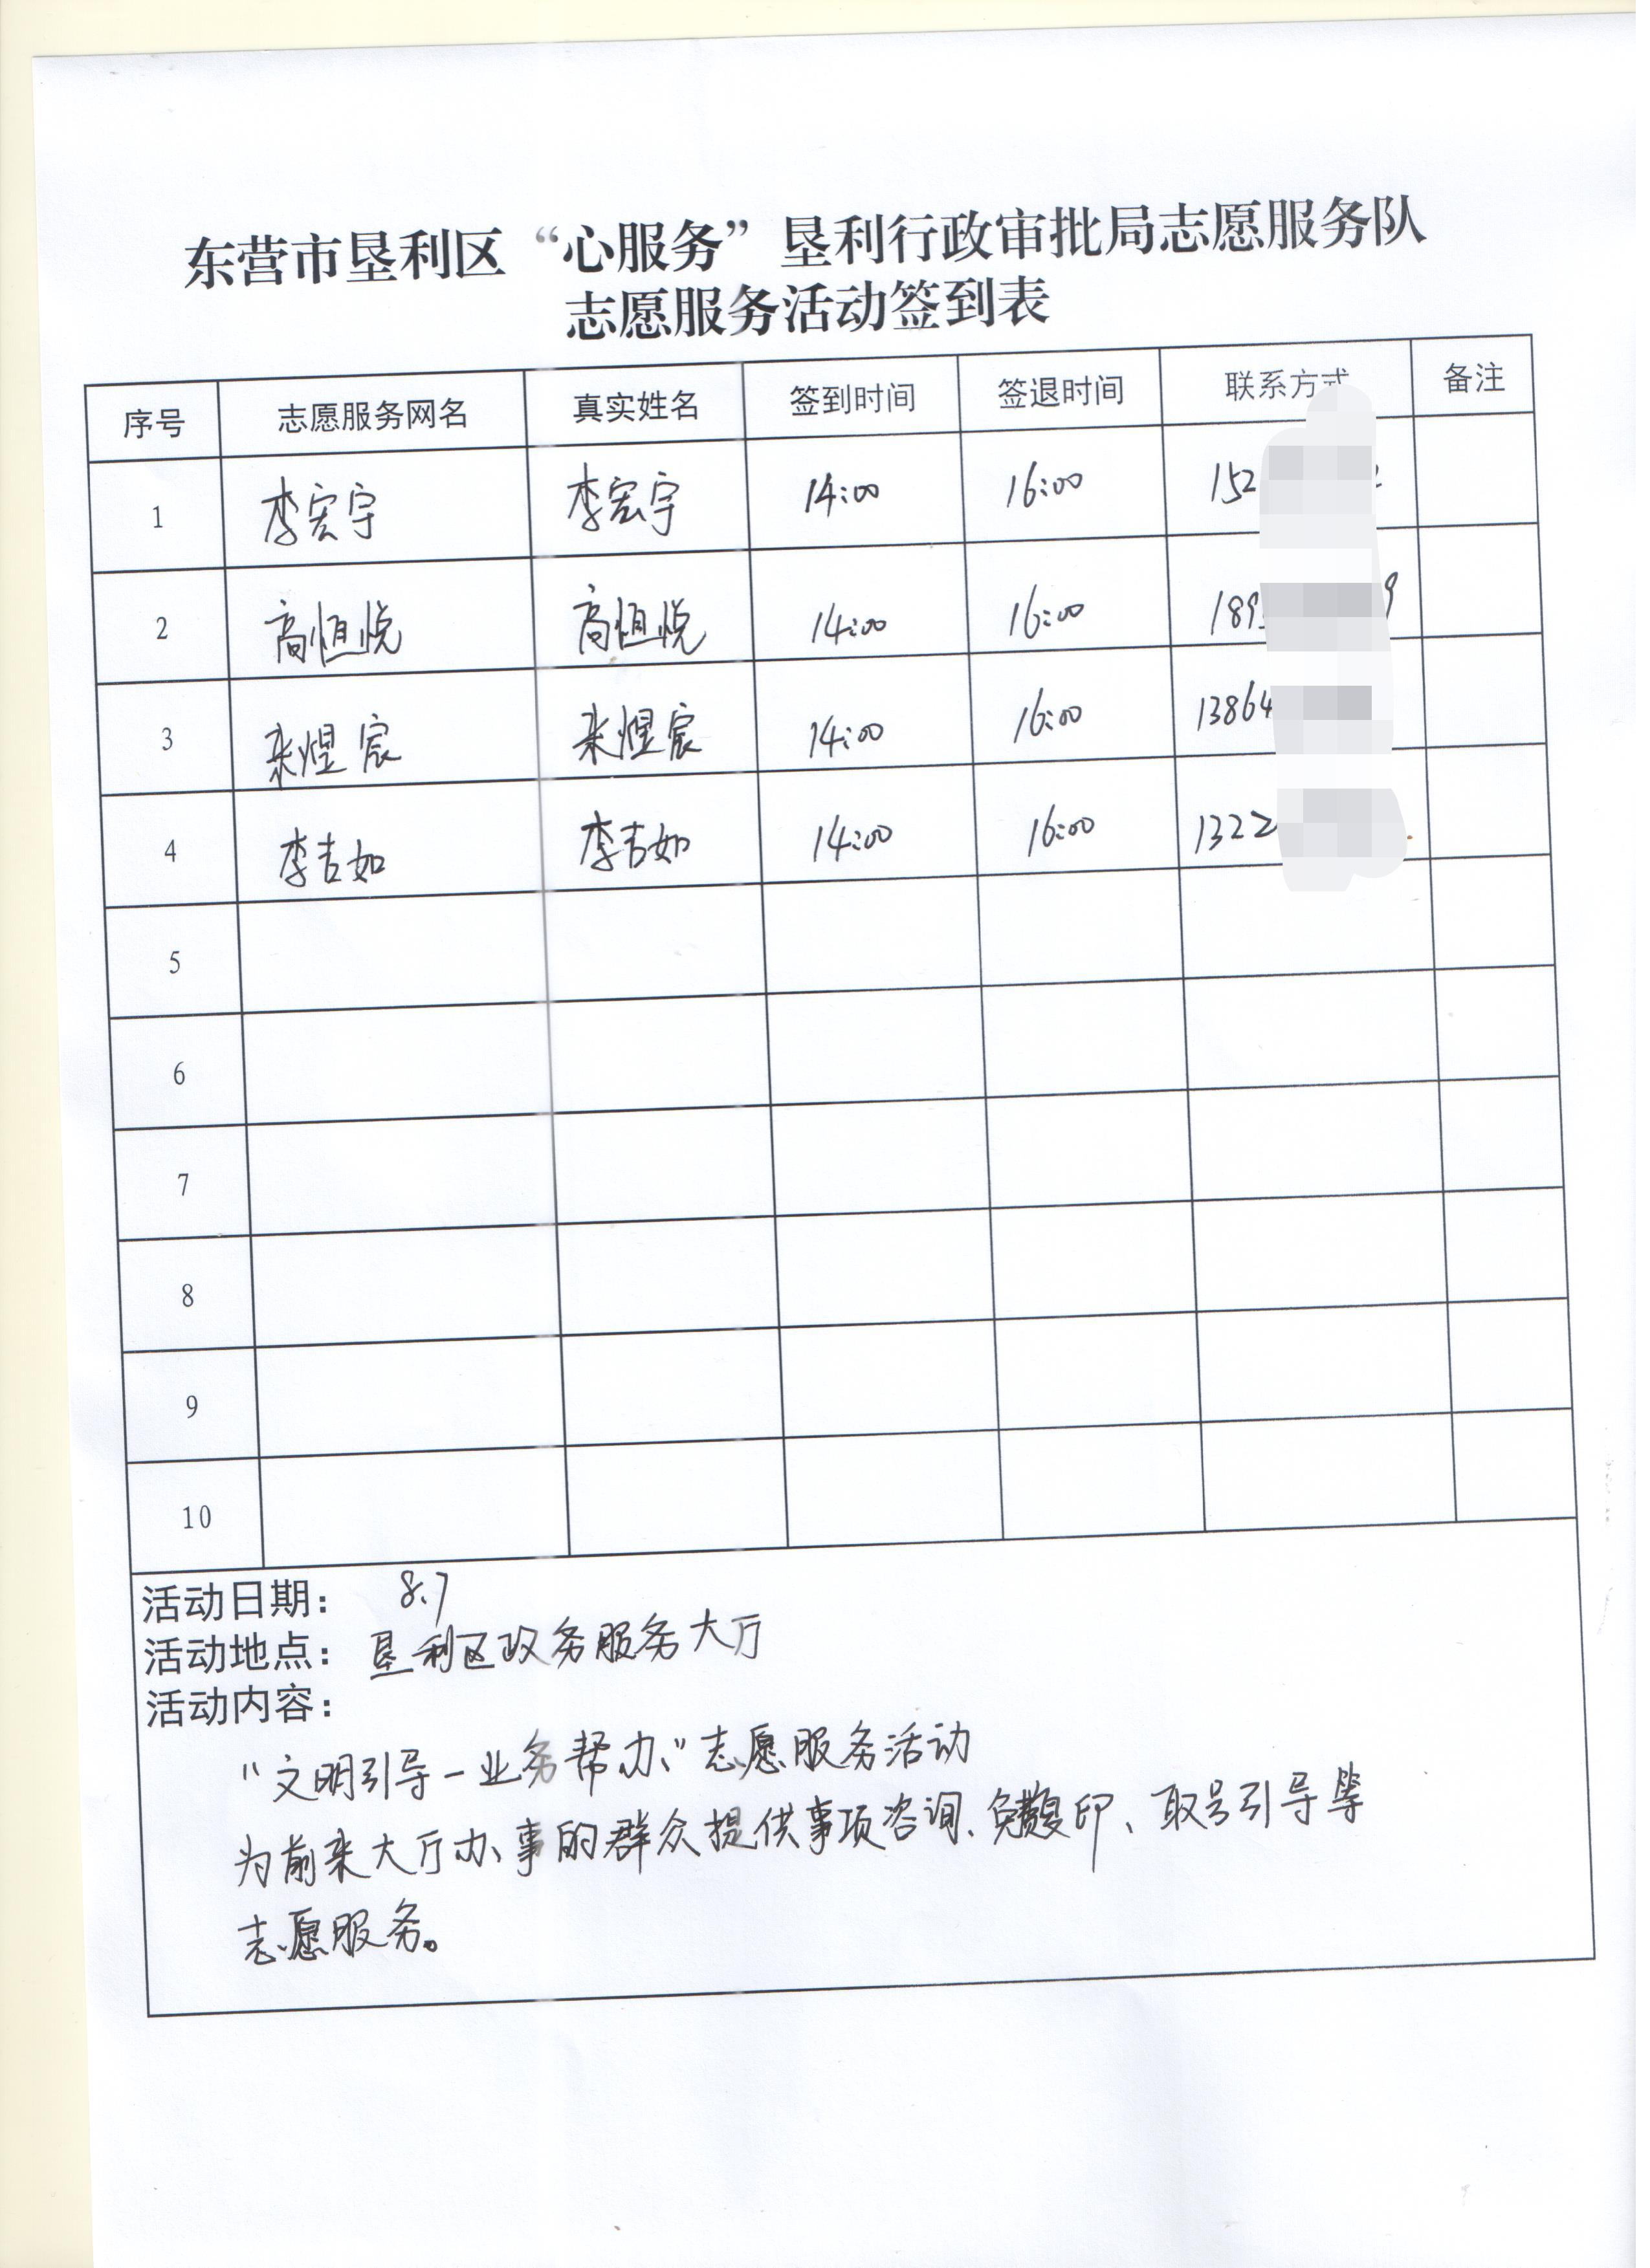 东营市垦利区“心服务”垦利行政审批局志愿服务队
志愿服务活动签到表
序号 志愿服务网名 真实姓名 签到时间 签退时间 联系方式 备注
1 李宏宇 李宏宇 14:00 16:00 152
2 高恒悦 高恒悦 14:00 16:00 189 9
3 来煜宸 来煜宸 14:00 16:00 13864
4 李吉如 李吉如 14:00 16:00 1322
5
6
7
8
9
10
活动日期： 8.7
活动地点：垦利区政务服务大厅
活动内容：
“文明引导-业务帮办”志愿服务活动
为前来大厅办事的群众提供事项咨询、免费复印、取号引导等
志愿服务。